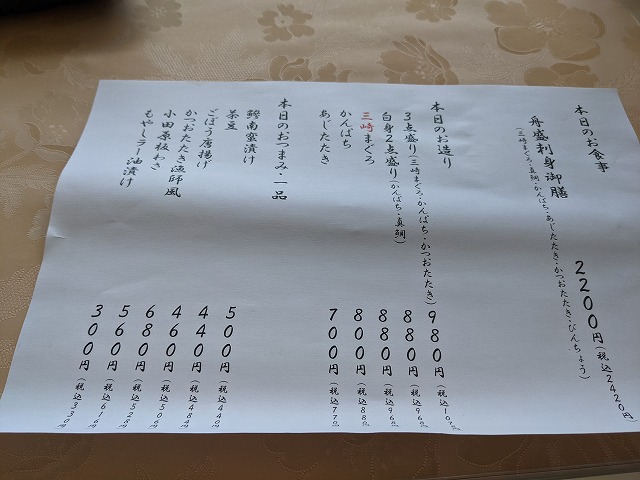 本日のお食事
舟盛刺身御膳 2200円(税込2420円)
(三崎まぐろ・真鯛・かんぱち・あじたたき・かつおたたき・びんちょう)
本日のお造り
3点盛り(三崎まぐろ・かんぱち・かつおたたき) 980円(税込
白身2点盛り(かんぱち・真鯛) 880円(税込
三崎まぐろ 880円(税込
かんぱち 800円(税込880
あじたたき 700円(税込770
本日のおつまみ・一品
鯵南蛮漬け 500円(税込440円)
茶豆 440円(税込484円)
ごぼう唐揚げ 460円(税込506円)
かつおたたき漁師風 680円(税込528円)
小田原板わさ 560円(税込616円)
もやしラー油漬け 300円(税込330円)